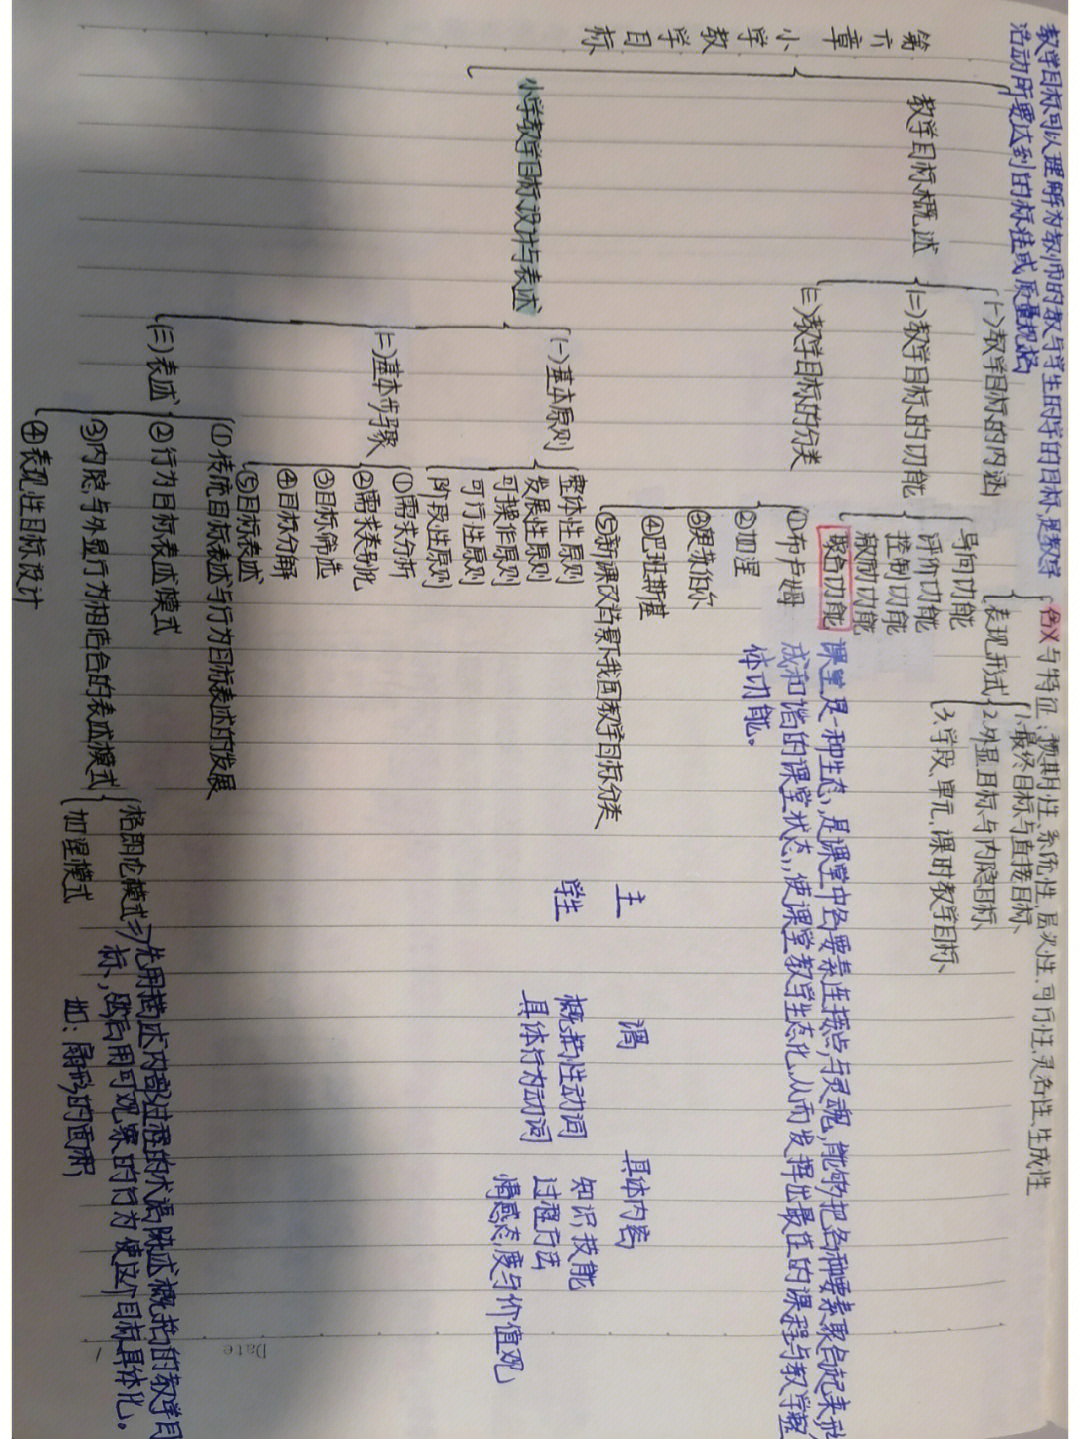 教学目标可以理解为教师的教与学生的学的目标,是教学
活动所要达到的标准或质量规格
含义与特征:预期性、系统性、层次性、可行性、灵活性、生成性
表现形式
1.最终目标与直接目标、
2.外显目标与内隐目标、
3.学段、单元、课时教学目标、
第六章 小学教学目标
教学目标概述
(一)教学目标的内涵
(二)教学目标的功能
导向功能
评价功能
控制功能
激励功能
聚合功能
课堂是一种生态,是课堂中各要素连接点与灵魂,能够把各种要素聚合起来形
成和谐的课堂状态,使课堂教学生态化,从而发挥出最佳的课程与教学整
体功能。
(三)教学目标的分类
①布卢姆
②加涅
③奥苏伯尔
④巴班斯基
⑤新课改背景下我国教学目标分类
主 谓 具体内容
学生 概括性动词 知识技能
具体行为动词 过程方法
情感态度与价值观
小学教学目标设计与表述
(一)基本原则
整体性原则
发展性原则
可操作原则
可行性原则
阶段性原则
(二)基本步骤
①需求分析
②需求类别化
③目标筛选
④目标分解
⑤目标表述
(三)表述
①传统目标表述与行为目标表述的发展
②行为目标表述模式
③内隐与外显行为相结合的表述模式
格朗伦模式 先用描述内部过程的术语陈述概括的教学目
标,然后用可观察的行为使这个目标具体化。
如:扇形的面积
加涅模式
④表现性目标设计
Date